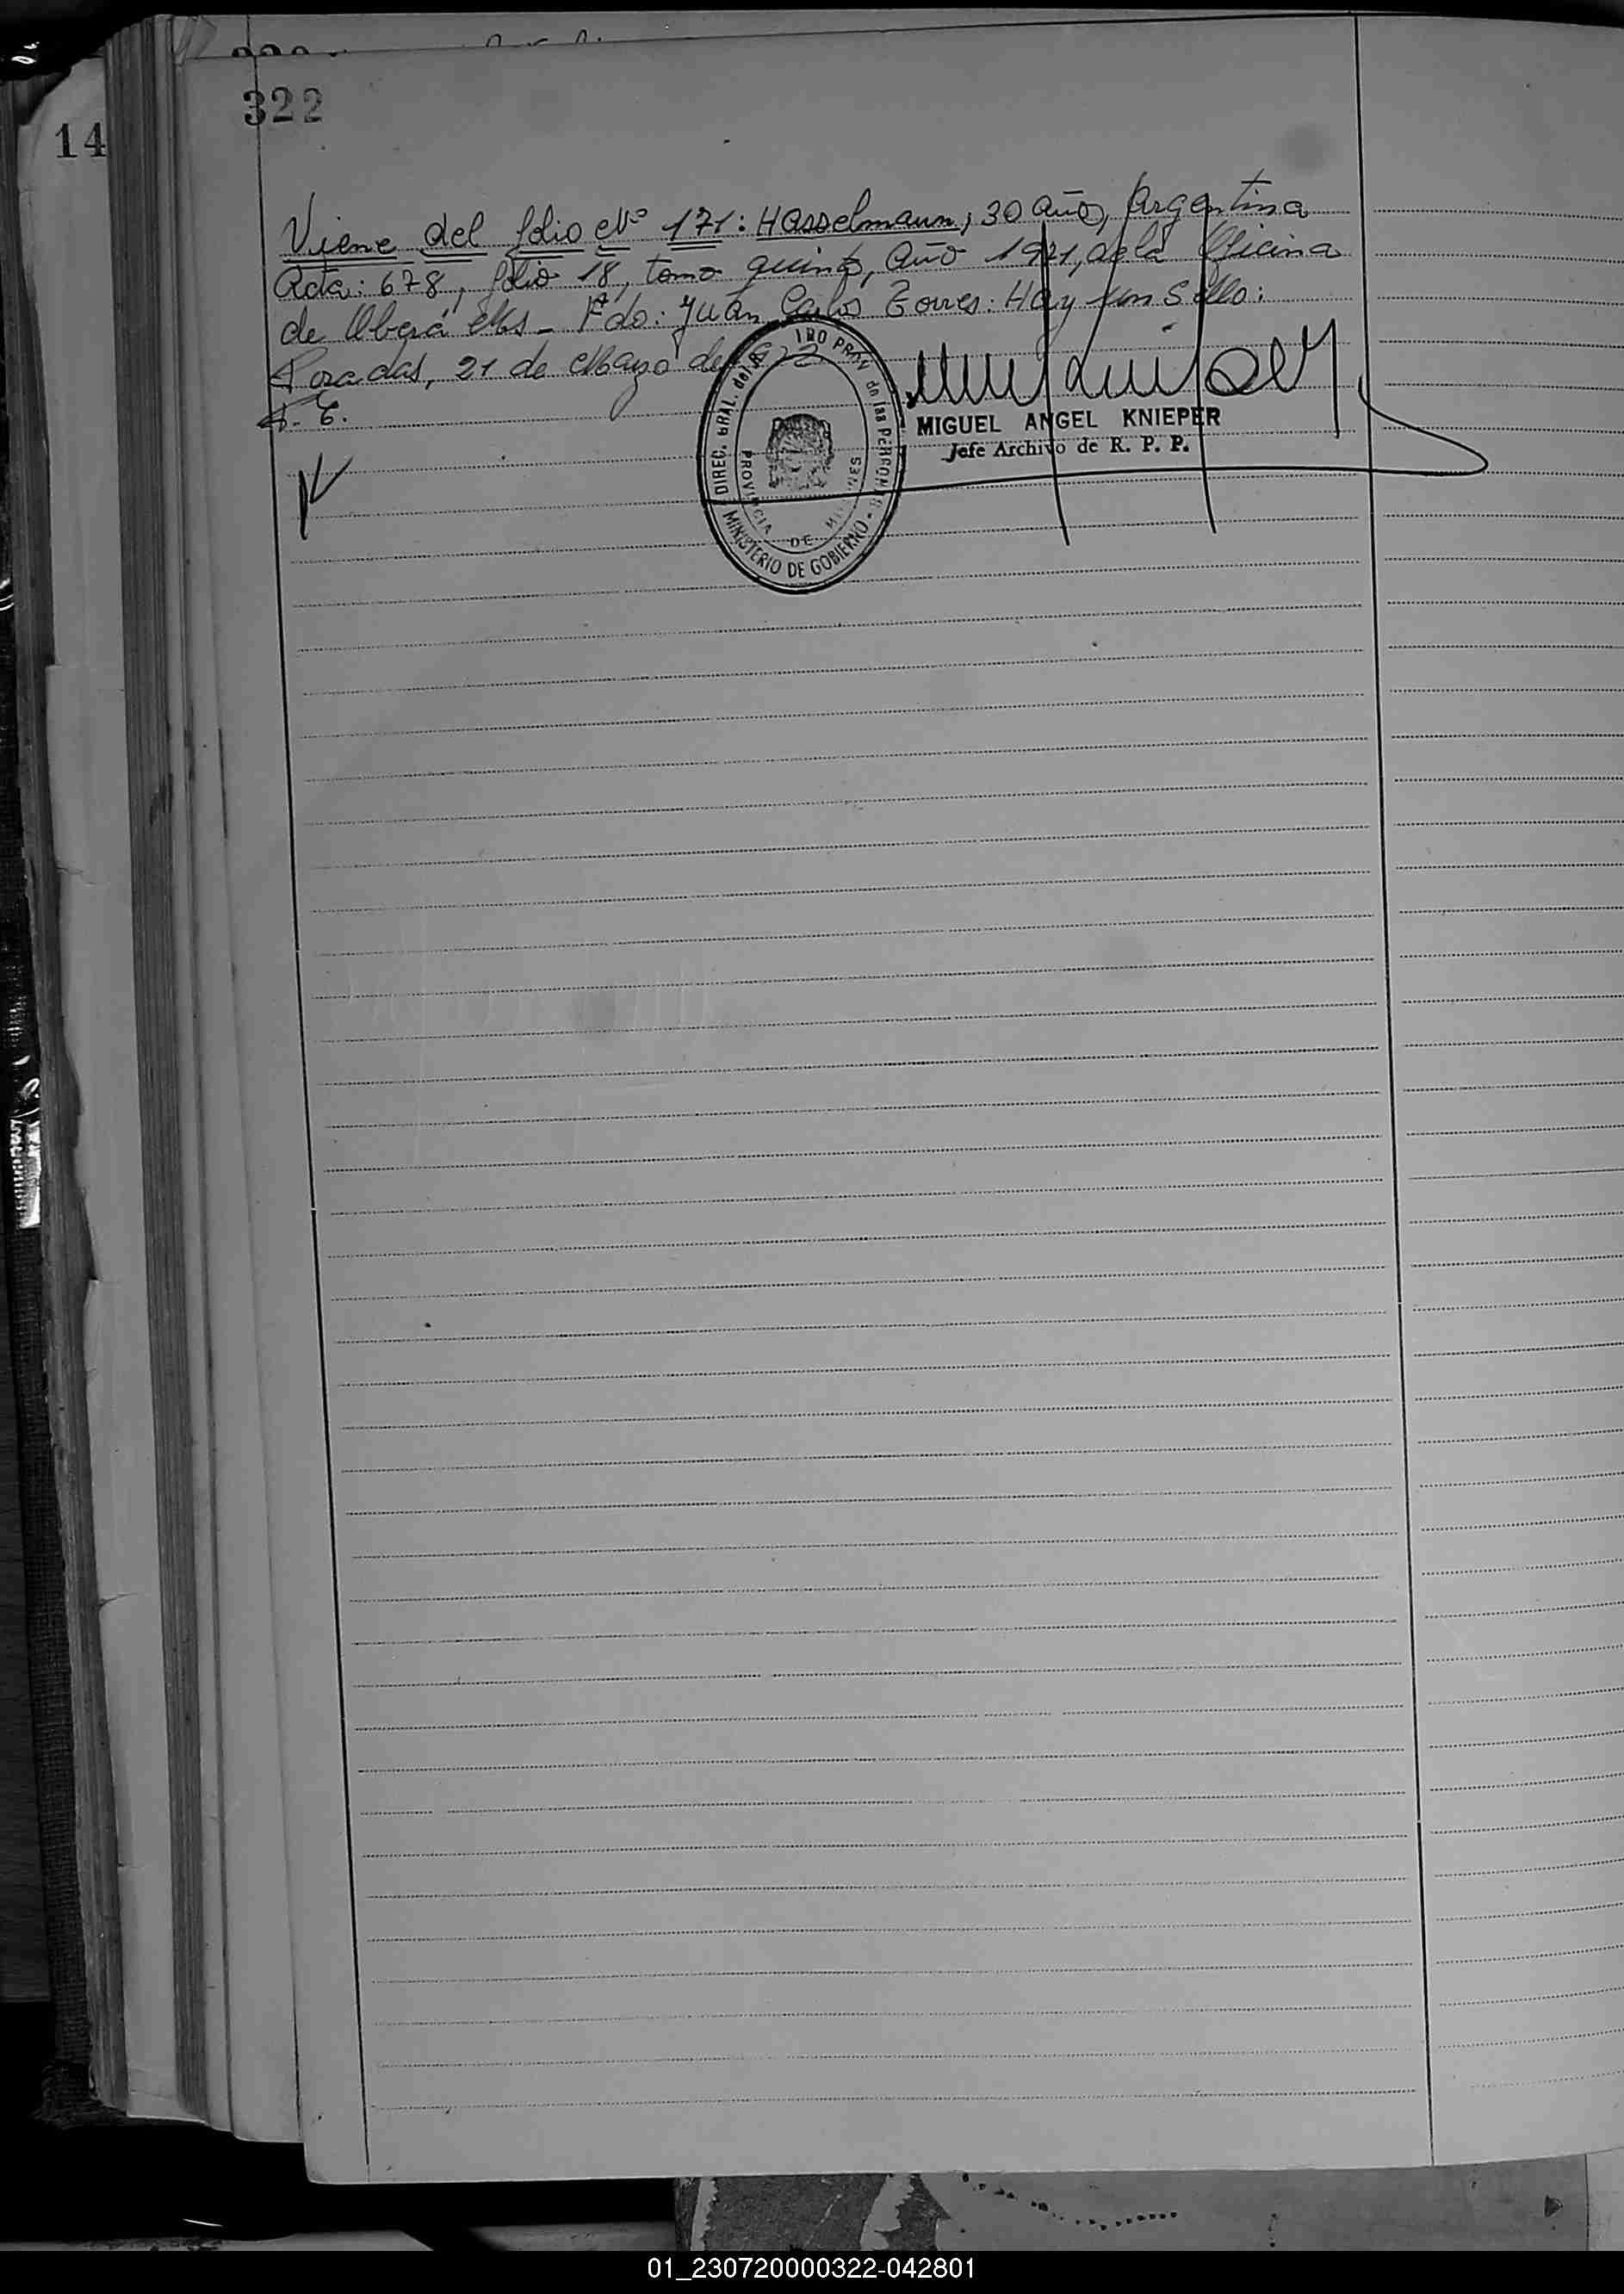 14
322
Viene del folio Nº 171: Hasselmann, 30 años, Argentina
Acta: 678, folio 18, tomo quinto, año 1971, de la Oficina
de Oberá Ms - Fdo: Juan Carlos Torres: Hay un Sello:
Posadas, 21 de Mayo de
MIGUEL ANGEL KNIEPER
Jefe Archivo de R. P. P.
DIREC. GRAL. del de las
PROVINCIA DE
MINISTERIO DE GOBIERNO
01_230720000322-042801